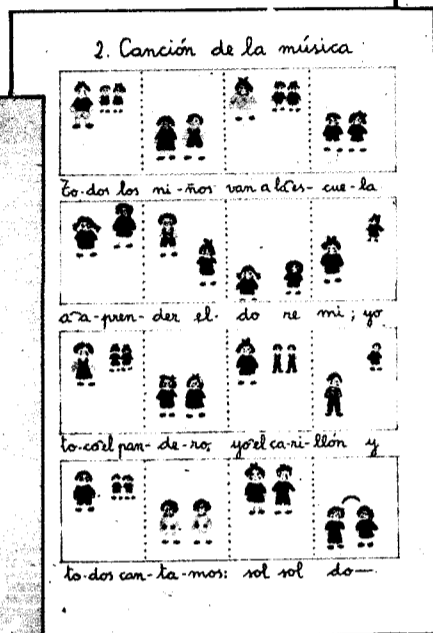 2. Canción de la música
To-dos los ni-ños van a la es- cue-la
a a-pren-der el do re mi; yo
to-co el pan-de-ro, yo el ca-ri-llón y
to-dos can-ta-mos: sol sol do—
4